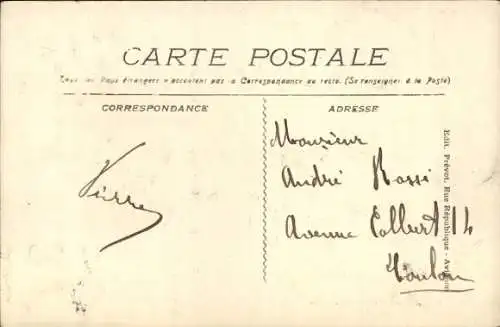 CARTE POSTALE
Tous les Pays étrangers n'acceptent pas la Correspondance au recto. (Se renseigner à la Poste)
CORRESPONDANCE
ADRESSE
Monsieur
André Rossi
Avenue Colbert 4
Toulon
Edit. Prévot, Rue République - Avignon